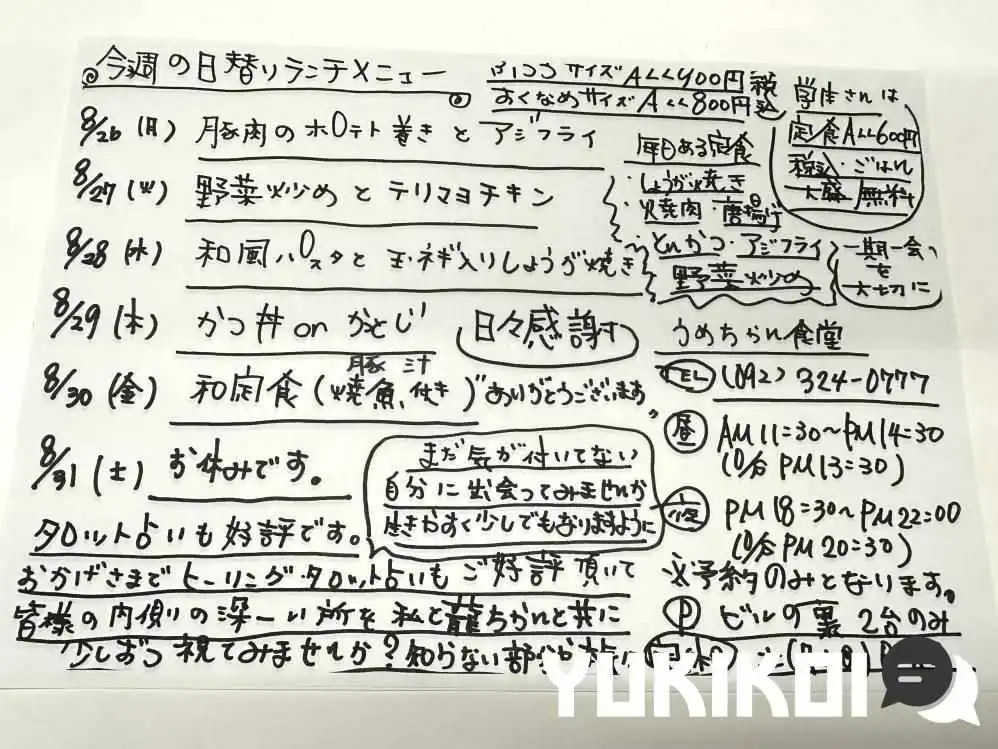 ◎今週の日替りランチメニュー◎
8/26(月) 豚肉のポテト巻きとアジフライ
8/27(火) 野菜炒めとテリマヨチキン
8/28(水) 和風パスタと玉ネギ入りしょうが焼き
8/29(木) かつ丼 on かつとじ
8/30(金) 和定食(焼魚、豚汁付き)
8/31(土) お休みです。
日々感謝
"ありがとうございます"
ふつうサイズALL900円税込
すくなめサイズALL800円
学生さんは
定食ALL600円
税込・ごはん
大盛/無料
毎日ある定食
・しょうが焼き
・焼肉・唐揚げ
とんかつ・アジフライ
野菜炒め
一期一会
を
大切に
うめちゃん食堂
TEL (092) 324-0777
昼 AM11:30〜PM14:30
(O/S PM13:30)
夜 PM18:30〜PM22:00
(O/S PM20:30)
※予約のみとなります。
P ビルの裏 2台のみ
まだ気が付いてない
自分に出会ってみませんか
生きやすく少しでもなりますように
タロット占いも好評です。
おかげさまでヒーリング・タロット占いもご好評頂いて
皆様の内側の深ーい所を私と龍ちゃんと共に
少しおつ視てみませんか?知らない部分
YUKIKOI